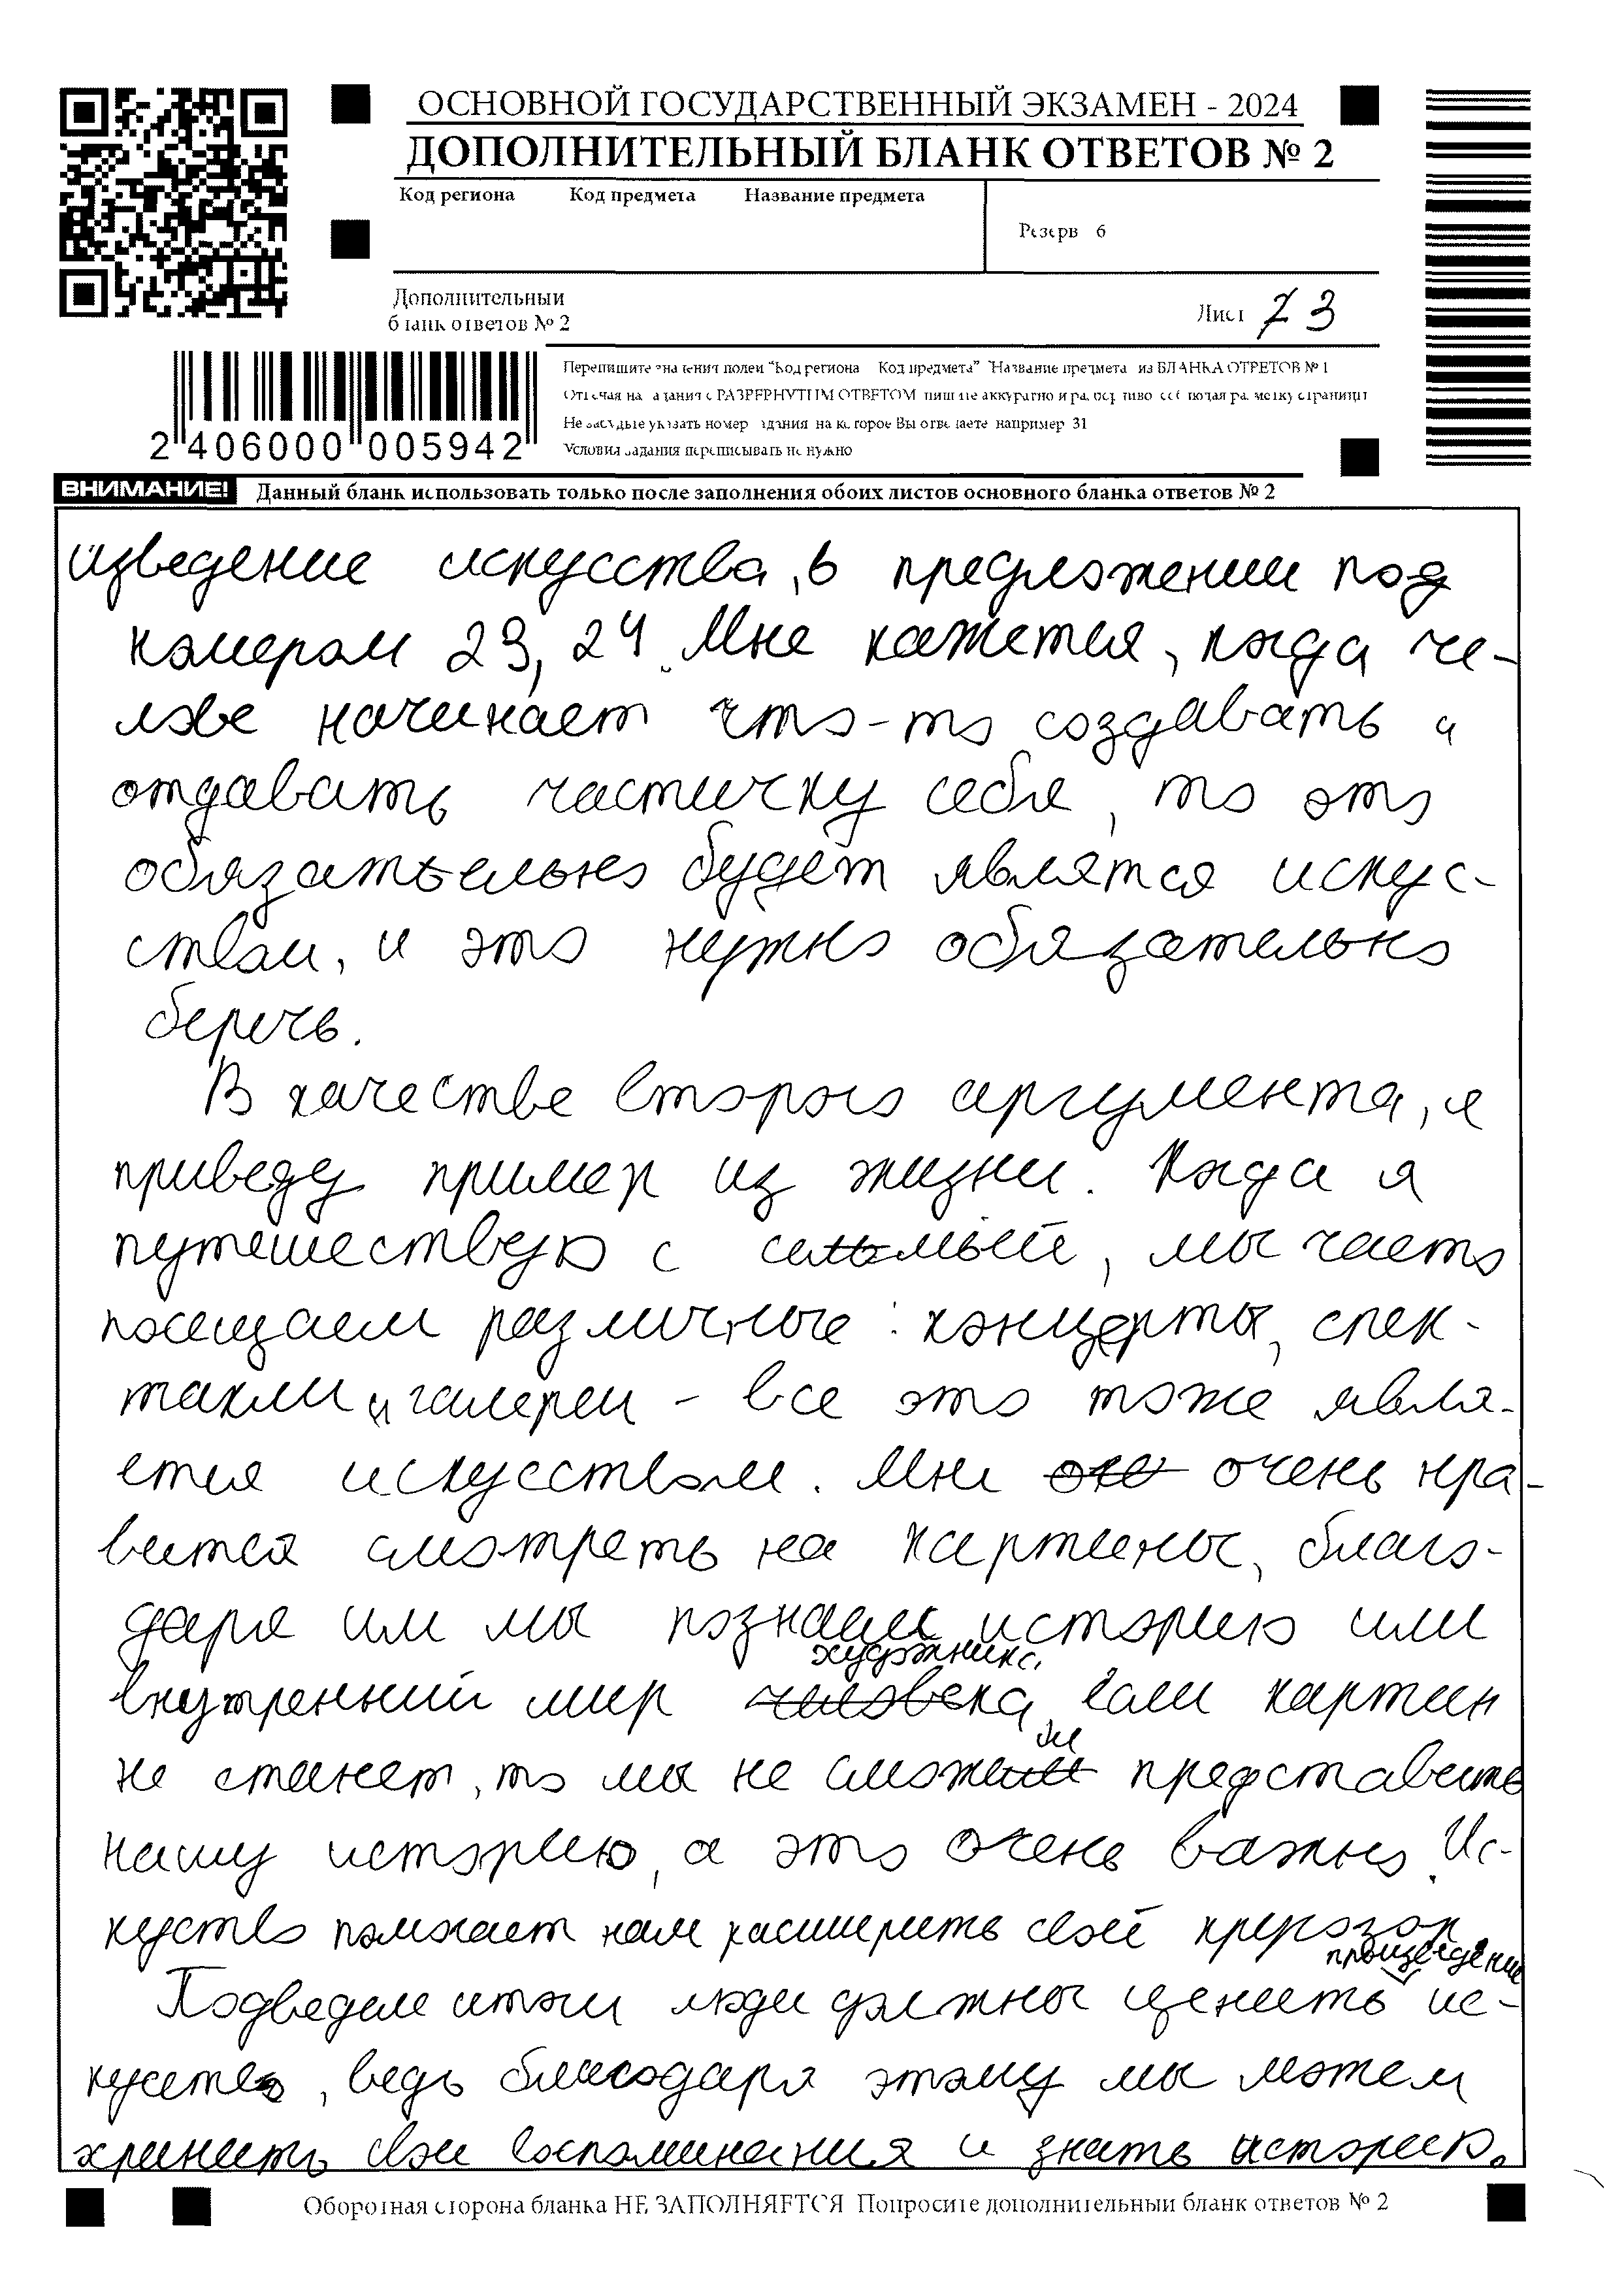 ОСНОВНОЙ ГОСУДАРСТВЕННЫЙ ЭКЗАМЕН - 2024
ДОПОЛНИТЕЛЬНЫЙ БЛАНК ОТВЕТОВ № 2
Код региона Код предмета Название предмета
Резерв 6
Дополнительный
бланк ответов № 2
Лист 3
Перепишите значения полей "Код региона" "Код предмета" "Название предмета" из БЛАНКА ОТВЕТОВ № 1
Отвечая на задания с РАЗВЕРНУТЫМ ОТВЕТОМ пишите аккуратно и разборчиво соблюдая разметку страницы
Не забудьте указать номер задания на которое Вы отвечаете например 31
Условия задания переписывать не нужно
2 406000 005942
ВНИМАНИЕ! Данный бланк использовать только после заполнения обоих листов основного бланка ответов № 2
изведение искусства, в предложении под
номером 23, 24. Мне кажется, когда че-
лове начинает что-то создавать и
отдавать частичку себя, то это
обязательно будет является искус-
ством, и это нужно обязательно
беречь.
В качестве второго аргумента, я
приведу пример из жизни. Когда я
путешествую с семьёй, мы часто
посещаем различные : концерты, спек-
такли и галереи - все это тоже явля-
ется искусством. Мне очень нра-
вится смотреть на картины, благо-
даря им мы познаем историю или
внутренний мир художника, если картин
не станет, то мы не сможем представить
нашу историю, а это очень важно. Ис-
куство помогает нам расширить свой
Подведем итоги люди должны ценить произведение ис-
куство, ведь благодаря этому мы можем
хранить свои воспоминания и знать историю.
Оборотная сторона бланка НЕ ЗАПОЛНЯЕТСЯ Попросите дополнительный бланк ответов № 2